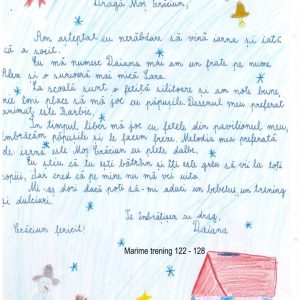 Dragă Moș Crăciun,
Am așteptat cu nerăbdare să vină iarna și iată
că a sosit.
Eu mă numesc Daiana mai am un frate pe nume
Alex și o surioară mai mică Sara.
La școală sunt o fetiță silitoare și am note bune,
îmi place să mă joc cu păpușile. Desenul meu preferat
animat este Barbie.
În timpul liber mă joc cu fetele din pavilionul meu,
îmbrăcăm păpușile și le facem freze. Melodia mea preferată
de iarnă este Moș Crăciun cu plete dalbe.
Eu știu că tu ești bătrân și îți este greu să vii la toți
copiii, dar cred că pe mine nu mă vei uita.
Mi-aș dori dacă poți să-mi aduci un bebeluș, un trening
și dulciuri.
Te îmbrățișez cu drag,
Crăciun fericit! Daiana
Marime trening 122 - 128